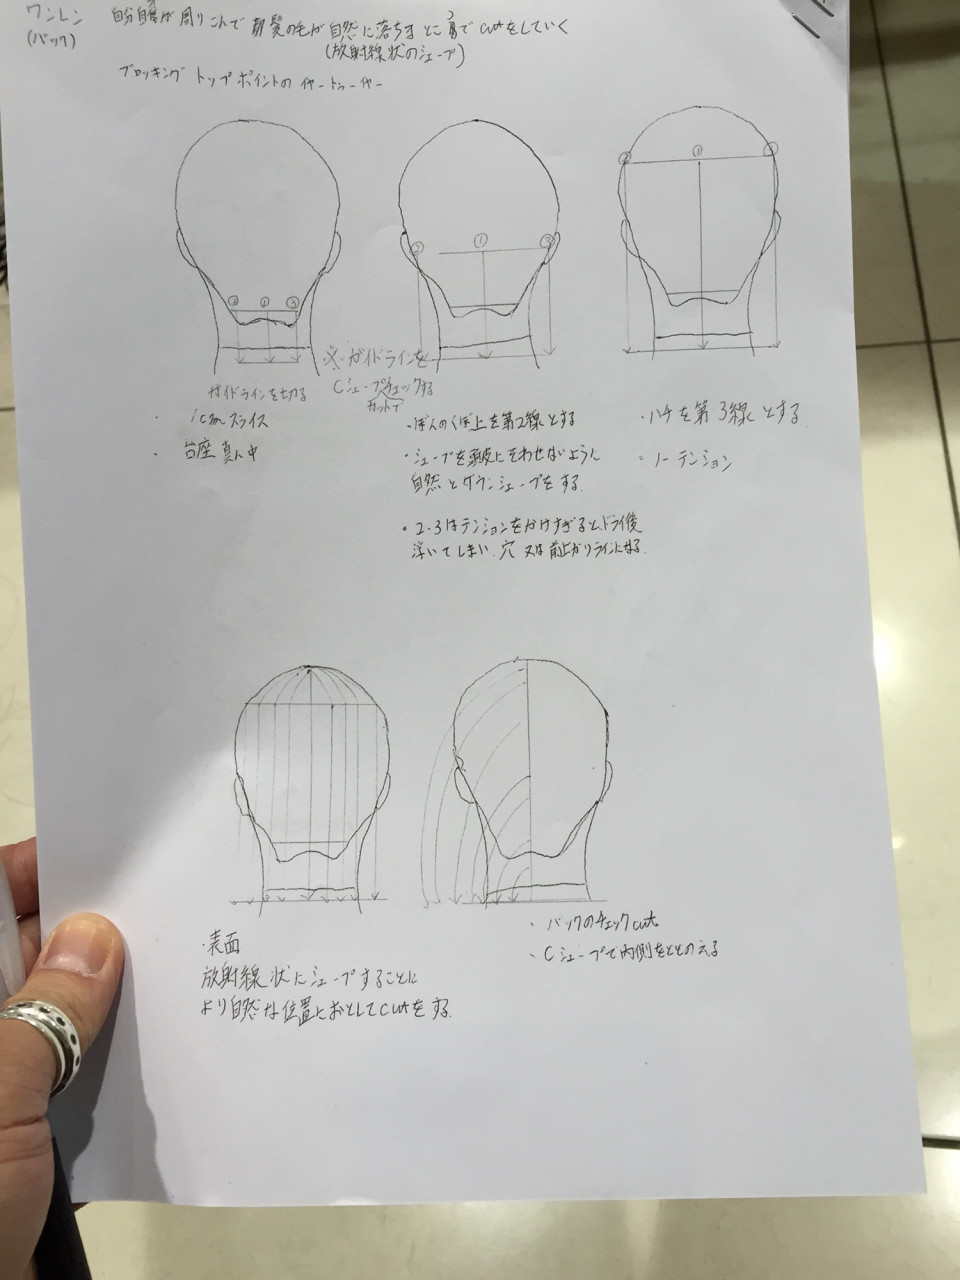 ワンレン
(バック)
自分自身が周りこんで 髪の毛が自然に落ちるところでcutをしていく
(放射線状のシェープ)
ブロッキング トップポイントのイヤートゥーイヤー
② ① ③
② ① ③
② ① ③
ガイドラインを切る
・1cmスライス
・台座真ん中
※ガイドラインを
Cシェープチェックする
カットで
・ぼんのくぼ上を第2線とする
・シェープを頭皮にそわせないように
自然とダウンシェープをする。
・2.3はテンションをかけすぎるとドライ後
浮いてしまい、穴 又は前上がりラインになる。
・ハチを第3線とする。
・ノーテンション
・表面
放射線状にシェープすることに
より自然な位置におとしてcutをする。
・バックのチェックcut
・Cシェープで内側をととのえる